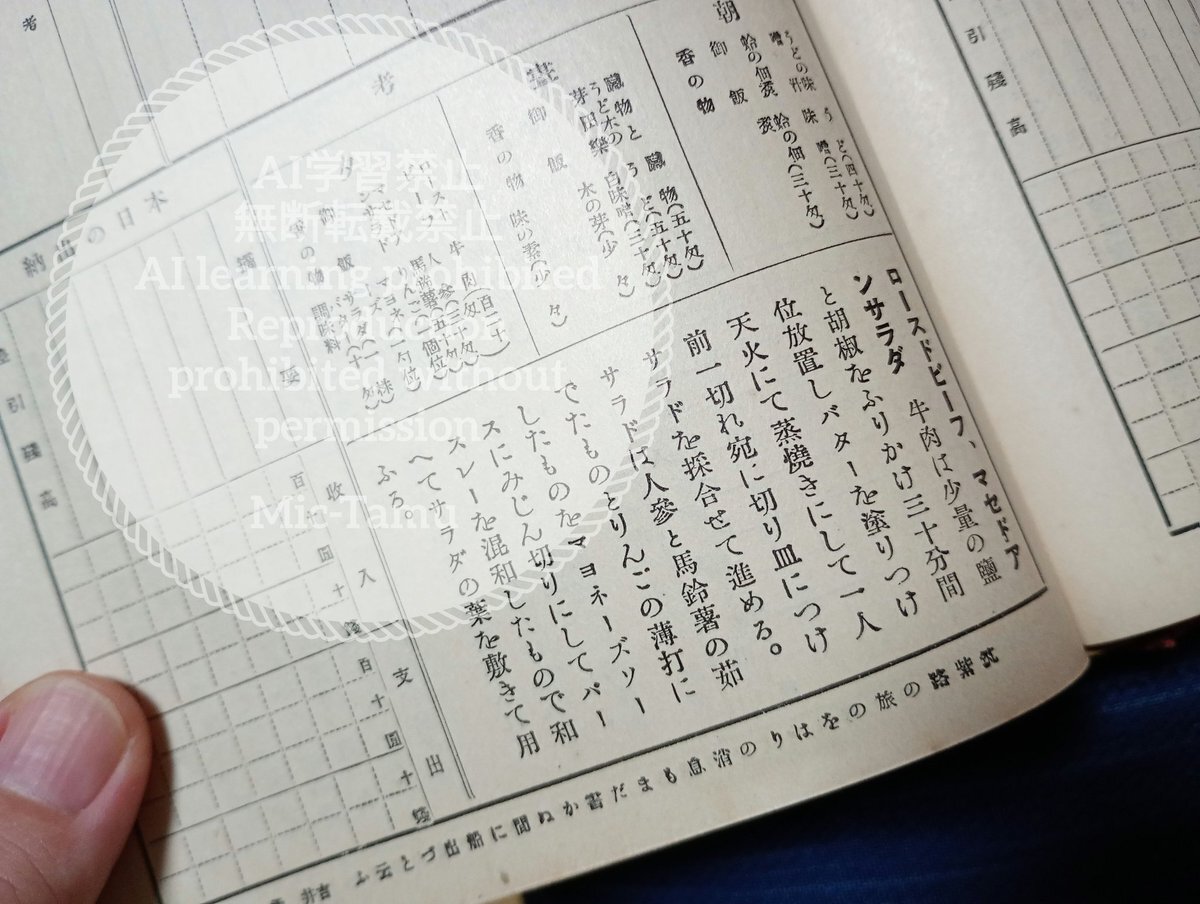 朝
うどの味噌汁
う ど(四十匁)
味 噌(三十匁)
蛤の佃煮
蛤の佃煮(三十匁)
御 飯
香の物
臓物と
うど木の
芽田樂
臓 物(五十匁)
う ど(五十匁)
白味噌(三十匁)
木の芽(少 々)
御 飯
味の素(少 々)
香の物
夕
ロースト
牛 肉(百二十匁)
人 參(三十匁)
馬鈴薯(五十匁)
御 飯
香の物
調味料
ロースドビーフ、マセドア
ンサラダ 牛肉は少量の鹽
と胡椒をふりかけ三十分間
位放置しバターを塗りつけ
天火にて蒸燒きにして一人
前一切れ宛に切り皿につけ
サラドを採合せて進める。
サラドは人參と馬鈴薯の茹
でたものとりんこの薄打に
したものをマヨネーズソー
スにみじん切りにしてパー
スレーを混和したもので和
へてサラダの葉を敷きて用
ふる。
筑紫路の旅のをはりの消息もまだ書かぬ間に船出づと云ふ 吉井
考
備考
本日の出納
摘 要
收入
支出
百十圓十錢
百十圓十錢
差引殘高
引殘高
AI学習禁止
無断転載禁止
AI learning prohibited
Reproduction
prohibited without
permission
Mic-Tamu